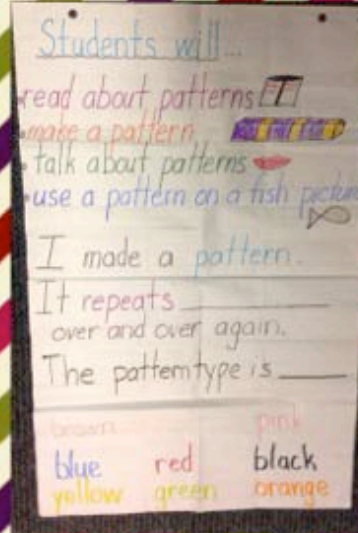 Students will...
• read about patterns
• make a pattern
• talk about patterns
• use a pattern on a fish picture
I made a pattern.
It repeats ________
over and over again.
The pattern type is ____
brown pink
blue red black
yellow green orange